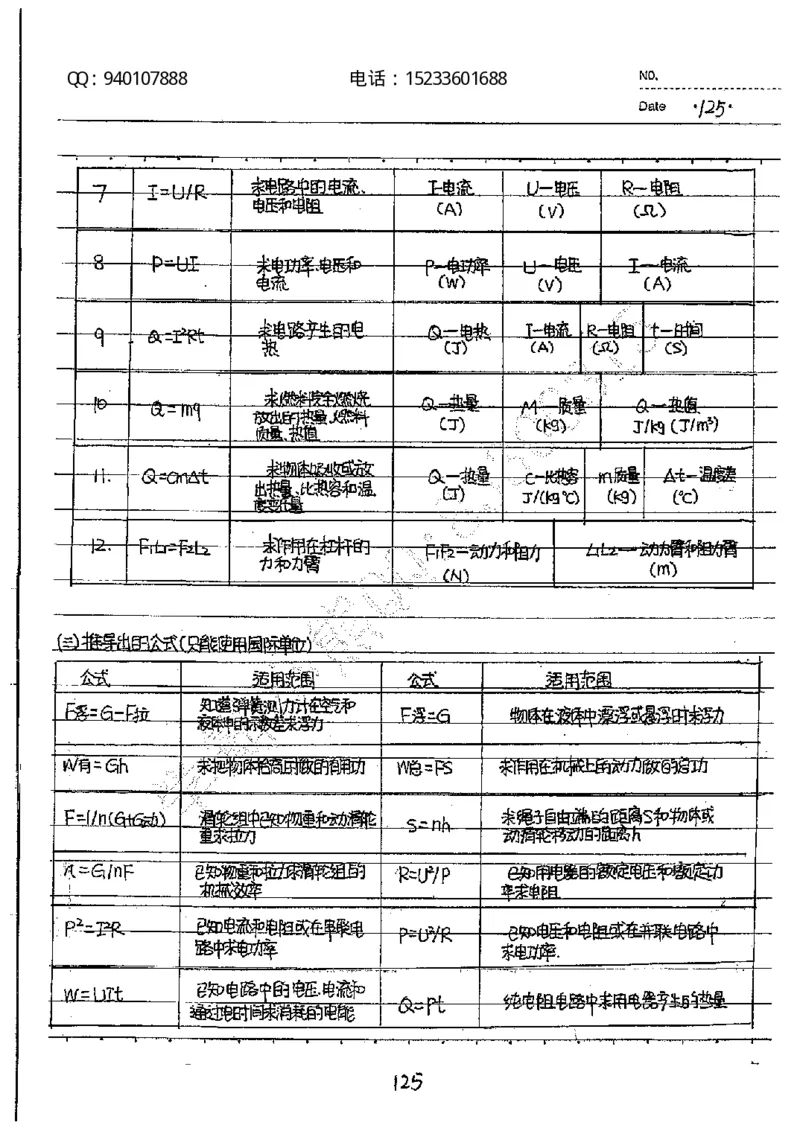 QQ：940107888 电话：15233601688 NO.
Date ·125·
7 I=U/R 求电路中的电流、 I-电流 U-电压 R-电阻
电压和电阻 (A) (V) (Ω)
8 P=UI 求电功率、电压和 P-电功率 U-电压 I-电流
电流 (W) (V) (A)
9 Q=I²Rt 求电路产生的电 Q-电热 I-电流 R-电阻 t-时间
热 (J) (A) (Ω) (S)
10 Q=mq 求燃料完全燃烧 Q-热量 M-质量 Q-热值
放出的热量、燃料 (J) (kg) J/kg (J/m³)
质量、热值
11. Q=cmΔt 求物体吸收或放 Q-热量 c-比热容 m质量 Δt-温度差
出热量、比热容和温 (J) J/(kg℃) (kg) (℃)
度变化量
12. F₁L₁=F₂L₂ 求作用在杠杆的 F₁F₂-动力和阻力 L₁L₂-动力臂和阻力臂
力和力臂 (N) (m)
(三)推导出的公式(只能使用国际单位)
公式 适用范围 公式 适用范围
F浮=G-F拉 知道弹簧测力计在空气和 F浮=G 物体在液体中漂浮或悬浮时求浮力
液体中的示数差求浮力
W有=Gh 求把物体抬高时做的有用功 W总=FS 求作用在机械上的动力做的总功
F=1/n(G+G动) 滑轮组中已知物重和动滑轮 S=nh 求绳子自由端的距离S和物体或
重求拉力 动滑轮移动的距离h
η=G/nF 已知物重和拉力求滑轮组的 R=U²/P 已知用电器的额定电压和额定功
机械效率 率求电阻
P²=I²R 已知电流和电阻或在串联电 P=U²/R 已知电压和电阻或在并联电路中
路中求电功率 求电功率.
W=UIt 已知电路中的电压、电流和 Q=Pt 纯电阻电路中求用电器产生的热量
通过电时间求消耗的电能
125